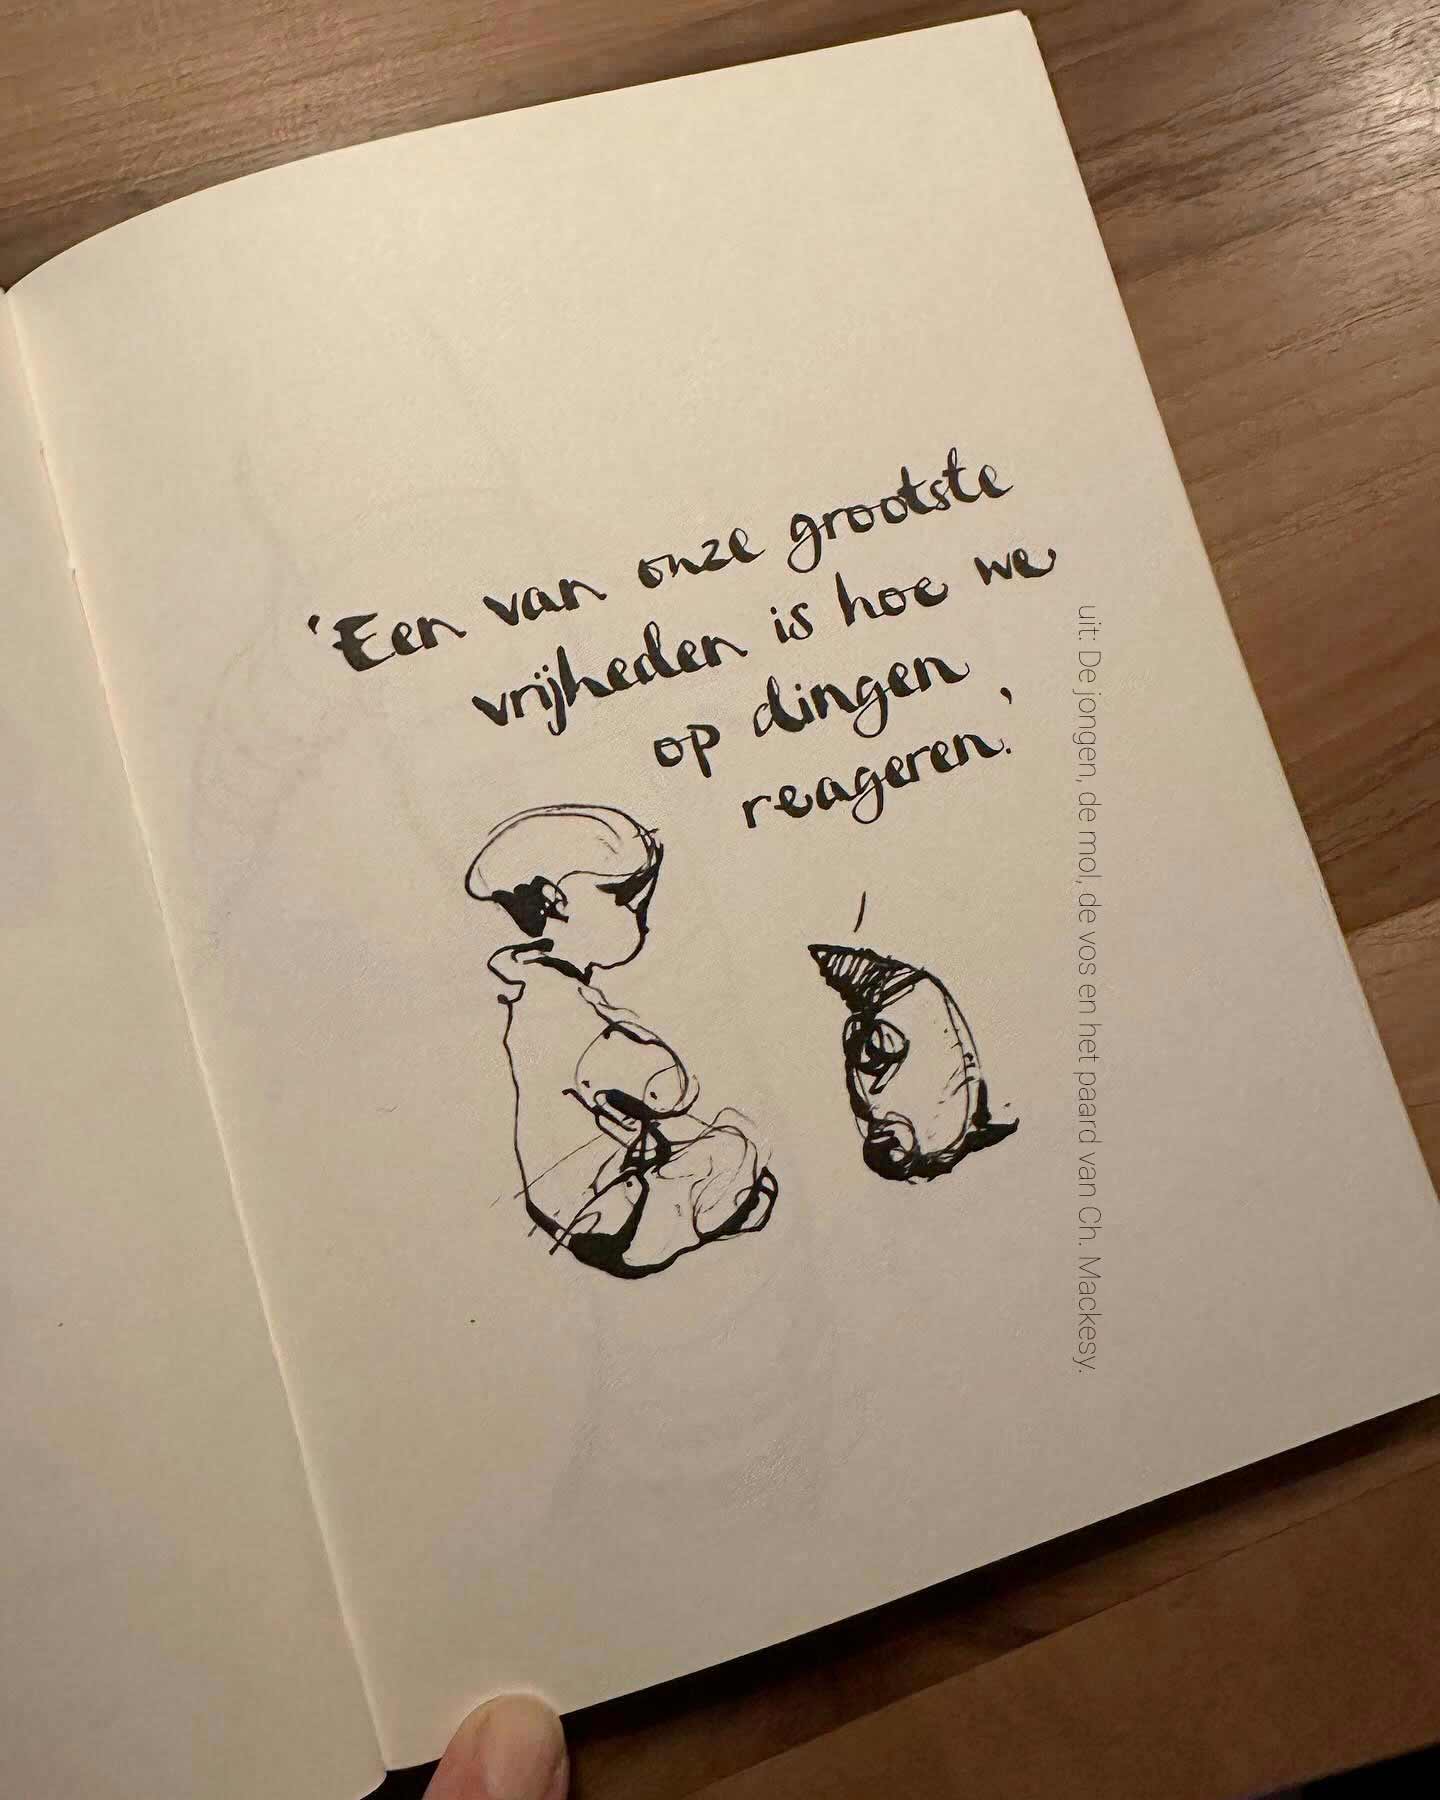 'Een van onze grootste
vrijheden is hoe we
op dingen
reageren.'
uit: De jongen, de mol, de vos en het paard van Ch. Mackesy.